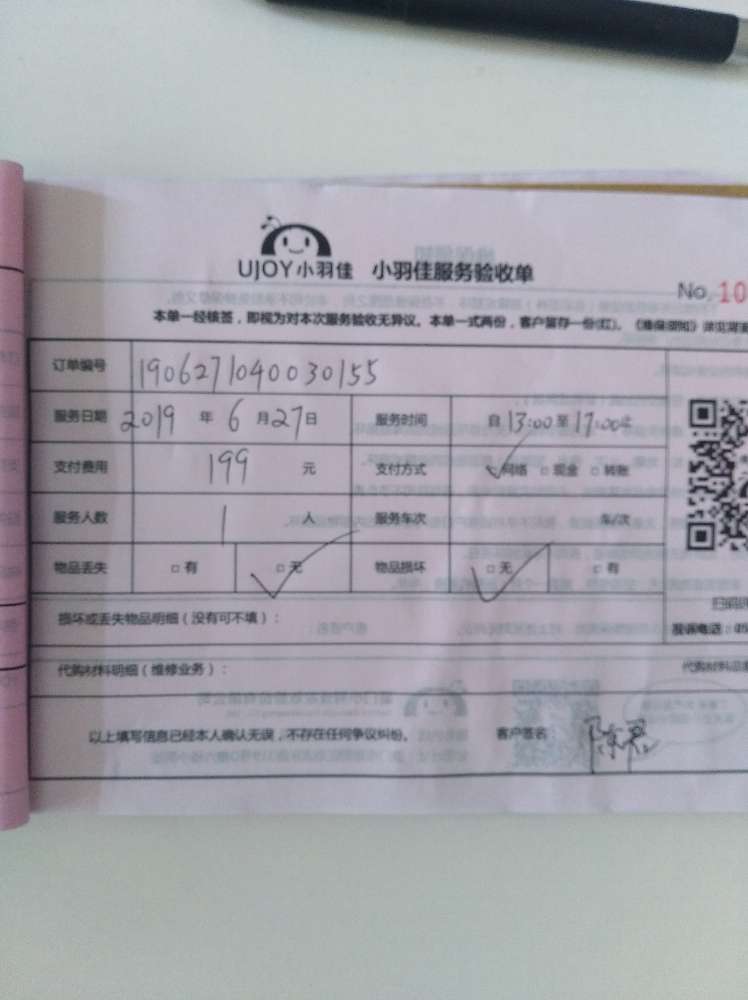 UJOY小羽佳 小羽佳服务验收单
No. 10
本单一经核签，即视为对本次服务验收无异议。本单一式两份，客户留存一份(红)。《维保须知》详见背面
订单编号 1906271040030155
服务日期 2019 年 6 月 27 日 服务时间 自 13:00 至 17:00止
支付费用 199 元 支付方式 ✓网络 □ 现金 □ 转账
服务人数 1 人 服务车次 车/次
物品丢失 □ 有 □ 无 ✓ 物品损坏 □ 无 ✓ □ 有
损坏或丢失物品明细（没有可不填）：
投诉电话：05
代购材料明细（维修业务）： 代购材料总
以上填写信息已经本人确认无误，不存在任何争议纠纷。 客户签名：